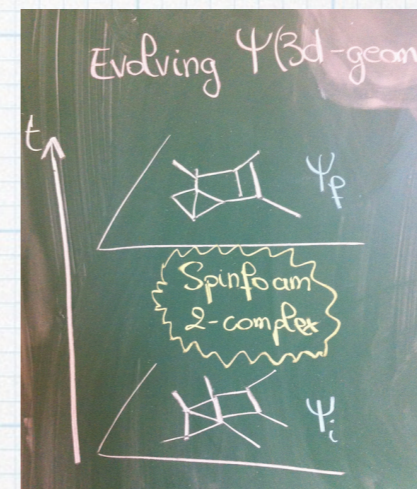 Evolving Ψ(3d-geom
t
Ψf
Spinfoam
2-complex
Ψi